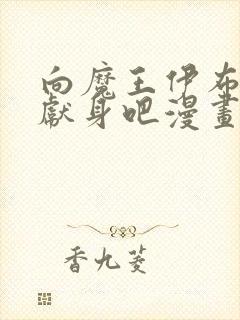 向魔王伊布
獻身吧漫畫
香九菱